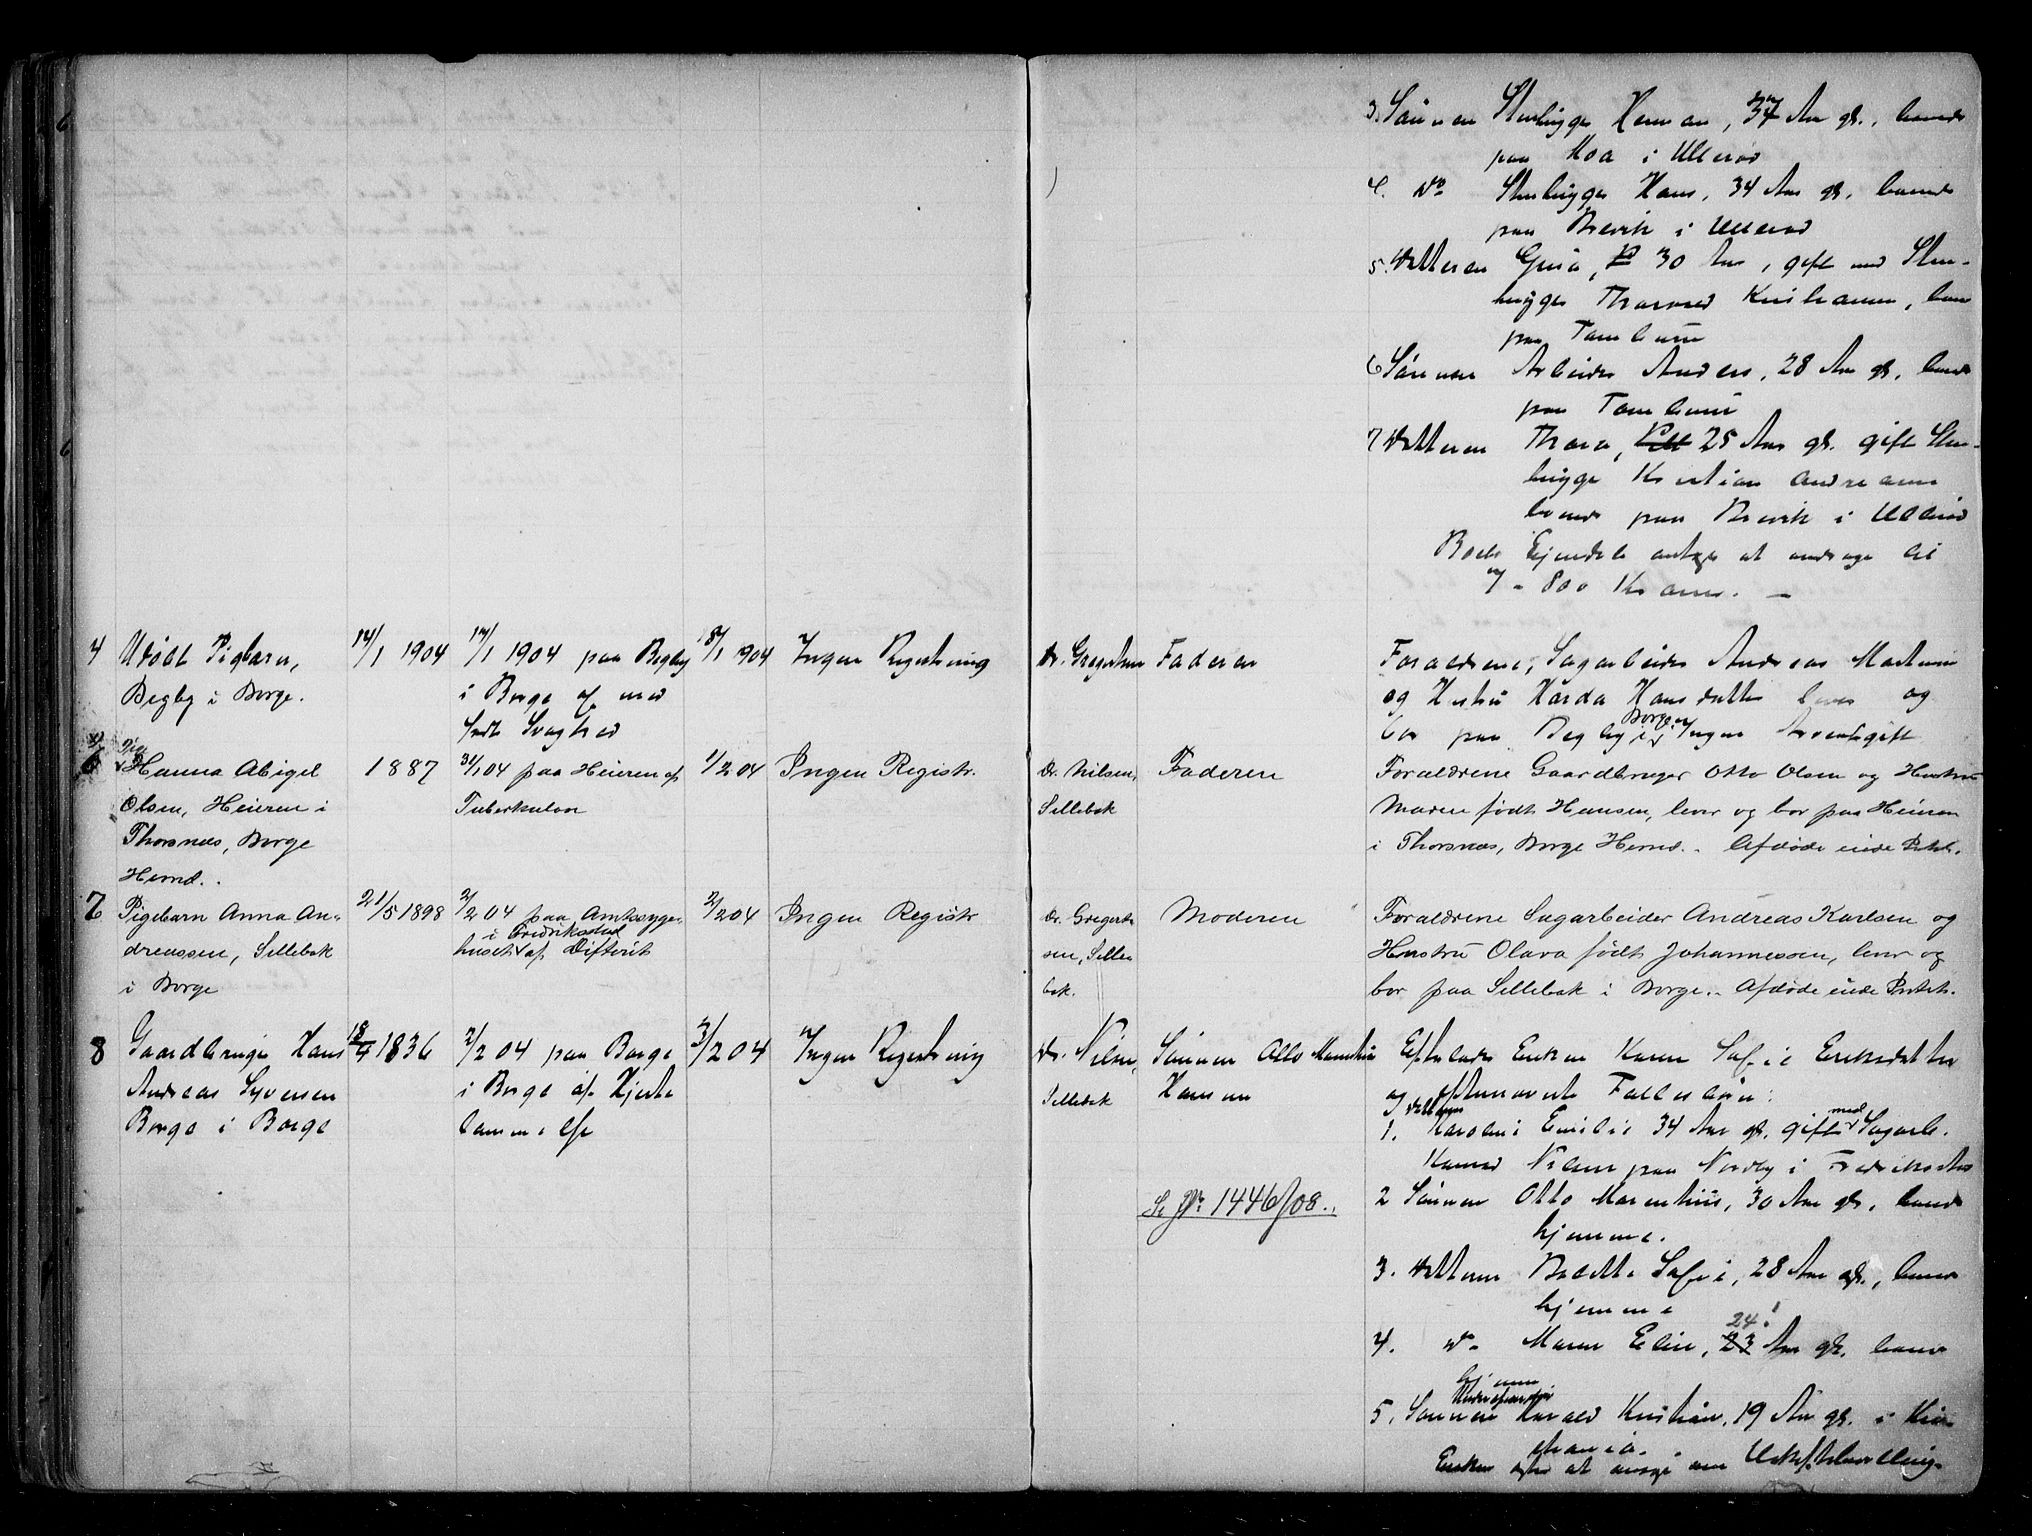 3. Sönnen Stenhugger Herman, 37 Aar gl., boende
paa Moa i Ullerød
4. do Stenhugger Hans, 34 Aar gl. boende
paa Brevik i Ullerød
5. Datteren Gusta, 30 Aar, gift med Sten-
hugger Thorvald Kristiansen, boen
paa Tamburu
6 Sönnen Arbeider Anders, 28 Aar gl. boende
paa Tamburu
7 Datteren Thora, 25 Aar gl. gift Sten-
hugger Kristian Andreasen
boende paa Brevik i Ullerød
Boets Ejendele antages at andrage til
7 - 800 Kroner. —
4 Udöbt Pigebarn,
Begby i Borge.
14/1 1904
17/1 1904 paa Begby
i Borge af med
födt Svaghed
18/1 904
Ingen Registrering
Dr. Gregertsen
Faderen
Forældrene, Sagarbeider Andreas Martinsen
og Hustru Hårda Hansdatter lever og
bor paa Begby i Borge. Ingen Arveafgift
6 Pige
Hanna Abigel
Olsen, Heieren i
Thorsnæs, Borge
Herred.
1887
31/1 04 paa Heieren af
Tuberkulose
1/2 04
Ingen Registr.
Dr. Nilsen,
Sellebak
Faderen
Forældrene Gaardbruger Otto Olsen og Hustru
Maren født Hansen, lever og bor paa Heieren
i Thorsnæs, Borge Herred. Afdøde eiede Intet.
7 Pigebarn Anna An-
dreassen, Sellebak
i Borge
21/5 1898
2/2 04 paa Amtssyge-
huset i Fredrikstad af Difterit
2/2 04
Ingen Registr
Dr. Gregert-
sen, Selle-
bak.
Moderen
Forældrene Sagarbeider Andreas Karlsen og
Hustru Olava født Johannessen, lever og
bor paa Sellebak i Borge. Afdøde eiede Intet.
8 Gaardbruger Hans
Andreas Syversen
Borge i Borge
18/4 1836
2/2 04 paa Borge
i Borge af Hjerte
lammelse
3/2 04
Ingen Registrering
Dr. Nilsen,
Sellebak
Sönnen Otto Marentius
Hansen
Se Nr 1446/08.
Efterlader Enken Karen Sofie Eriksdatter
og efternævnte Fællesbörn:
1. Datteren Karoline Emilie 34 Aar gl. gift med Sagarb.
Konrad Nilsen paa Nordby i Fredrikstad
2 Sönnen Otto Marentius, 30 Aar gl. boende
hjemme.
3. Datteren Bolette Sofie, 28 Aar gl., boende
hjemme
4. do Maren Eline, 23 24! Aar gl. boende
hjemme
5. Sönnen Harald Kristian, 19 Aar gl. i Kri-
stiania.
Enken agter at ansöge om Uskiftebevilling.